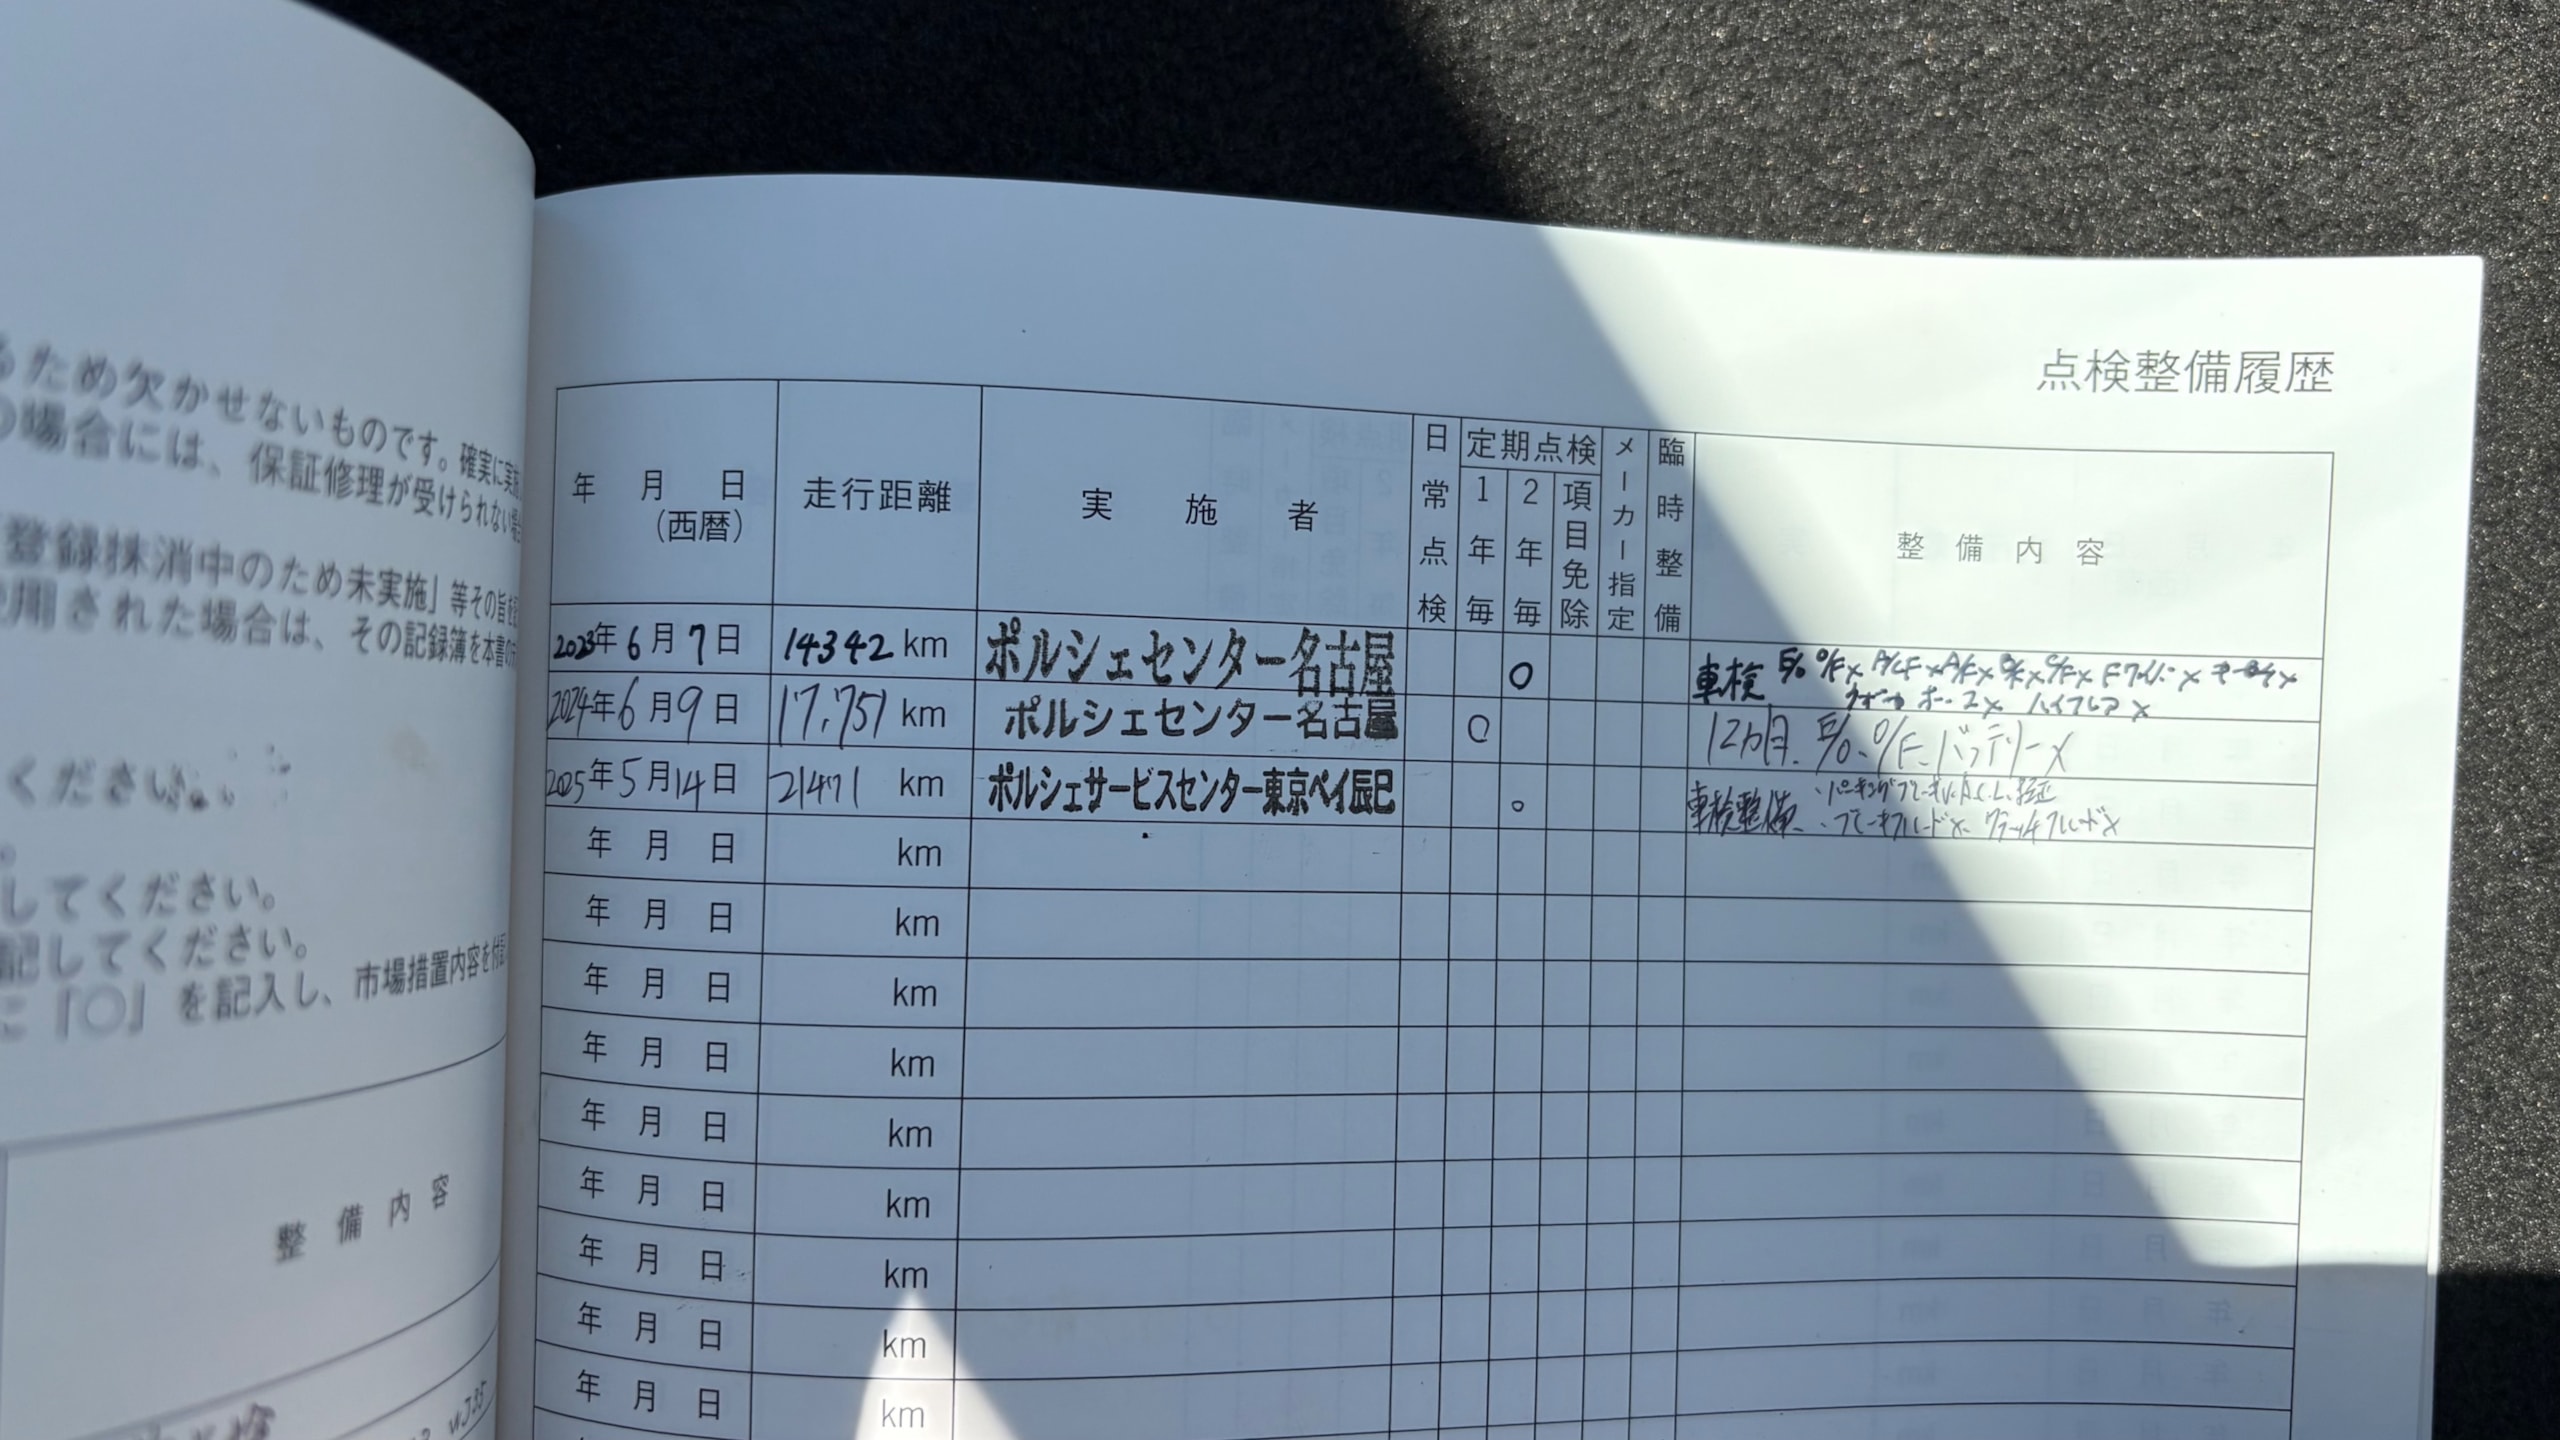 るため欠かせないものです。確実に実施
の場合には、保証修理が受けられない場合
「登録抹消中のため未実施」等その旨を
使用された場合は、その記録簿を本書の
ください。
してください。
記してください。
に「〇」を記入し、市場措置内容を付記
整備内容
点検整備履歴
年 月 日 (西暦) 走行距離 実施者 日常点検 定期点検 1年毎 2年毎 項目免除 メーカー指定 臨時整備 整備内容
2023年6月7日 14342 km ポルシェセンター名古屋 ○ 車検 E/o O/Fx A/Fx
2024年6月9日 17,751 km ポルシェセンター名古屋 ○ 12ヵ月. E/o. O/F. バッテリーx
2025年5月14日 21471 km ポルシェサービスセンター東京ベイ辰巳 ○ 車検整備 ・パーキングブレーキ
・ブレーキフルードx. クラッチフルードx
年 月 日 km
年 月 日 km
年 月 日 km
年 月 日 km
年 月 日 km
年 月 日 km
年 月 日 km
年 月 日 km
年 月 日 km